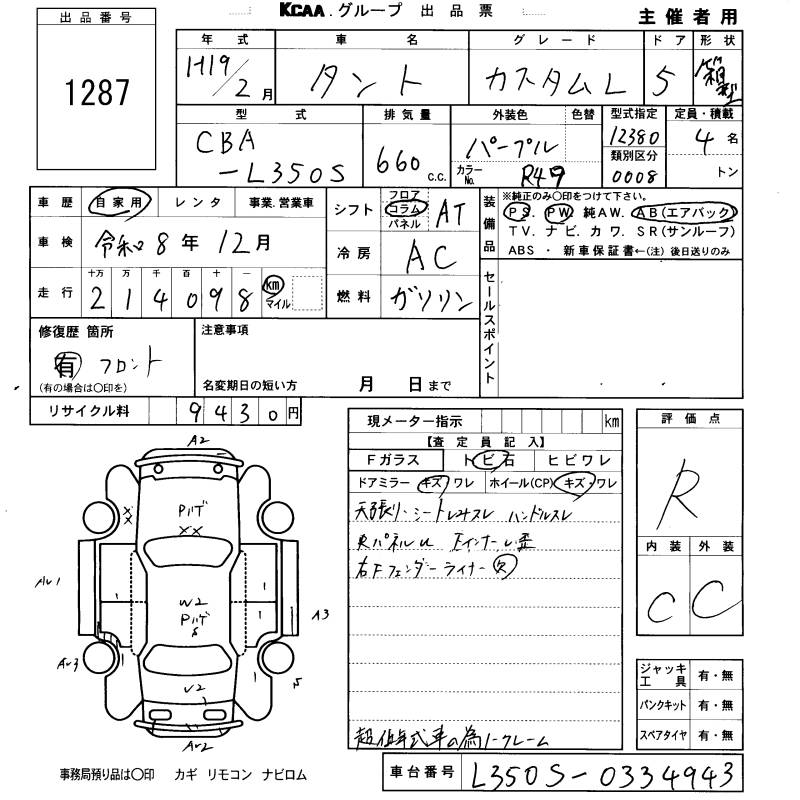 KCAA.グループ 出品票
主催者用
出品番号
1287
年式 車名 グレード ドア 形状
H19/2月 タント カスタムL 5 箱型
型式 排気量 外装色 色替 型式指定 定員・積載
CBA
-L350S 660 C.C. パープル 12380 4名
カラーNo. R49 類別区分 0008 トン
車歴 自家用 レンタ 事業.営業車
シフト フロア コラム パネル AT
装備品 ※純正のみ○印をつけて下さい。
PS. PW 純AW. AB(エアバック)
TV. ナビ. カワ. SR(サンルーフ)
ABS ・ 新車保証書←(注) 後日送りのみ
車検 令和8年12月
冷房 AC
走行 十万 万 千 百 十 一
214098 km マイル
燃料 ガソリン
セールスポイント
修復歴 箇所
有 フロント
(有の場合は○印を)
注意事項
名変期日の短い方 月 日まで
リサイクル料 9430円
現メーター指示 km
【査定員記入】
Fガラス トビ石 ヒビワレ
ドアミラー キズ ワレ ホイール(CP) キズ・ワレ
天張り、シートレサスレ ハンドルスレ
右Fフェンダーライナー 欠
超低年式車の為ノークレーム
評価点
R
内装 外装
C C
ジャッキ工具 有・無
パンクキット 有・無
スペアタイヤ 有・無
A2
Pハゲ
XX
XX
AU1
W2
Pハゲ
S
A3
AU3
U2
S
AU2
事務局預り品は○印 カギ リモコン ナビロム
車台番号 L350S-0334943